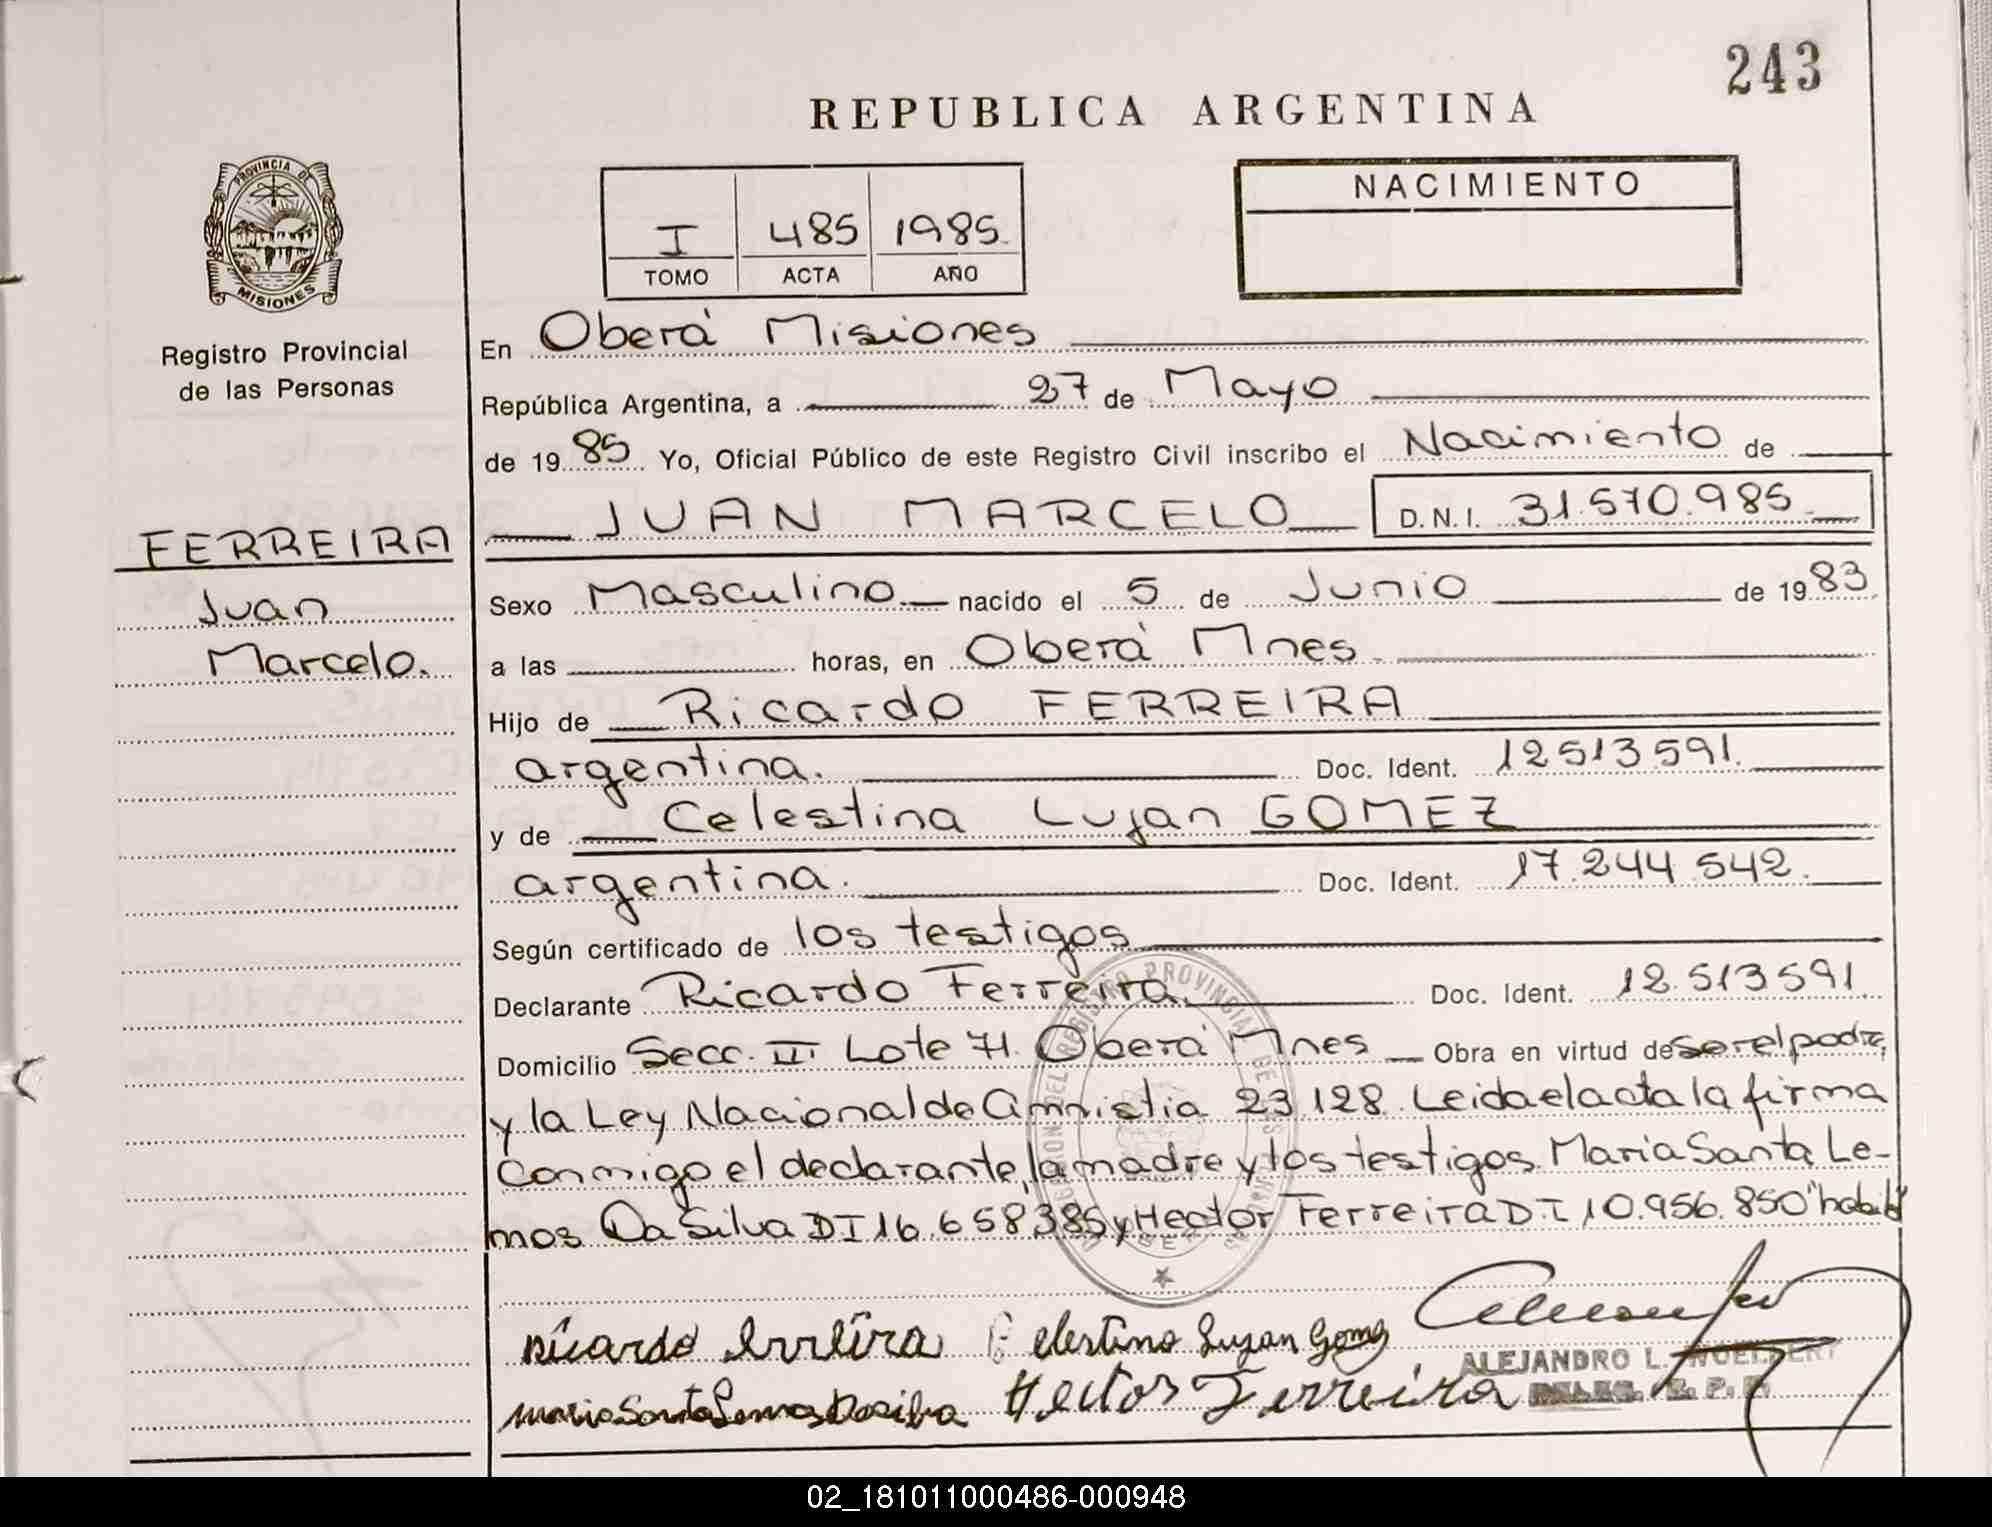 243
REPUBLICA ARGENTINA
PROVINCIA DE
MISIONES
Registro Provincial
de las Personas
I 485 1985
TOMO ACTA AÑO
NACIMIENTO
En Oberá Misiones
República Argentina, a 27 de Mayo
de 1985 Yo, Oficial Público de este Registro Civil inscribo el Nacimiento de
JUAN MARCELO D.N.I. 31.570.985
FERREIRA
Juan
Marcelo.
Sexo Masculino nacido el 5 de Junio de 1983
a las horas, en Oberá Mnes
Hijo de Ricardo FERREIRA
argentina. Doc. Ident. 12513591.
y de Celestina Lujan GOMEZ
argentina. Doc. Ident. 17.244.542.
Según certificado de los testigos
Declarante Ricardo Ferreira Doc. Ident. 12.513591.
Domicilio Secc. III Lote 71. Oberá Mnes Obra en virtud de ser el padre,
y la Ley Nacional de Amnistia 23.128. Leida el acta la firma
Conmigo el declarante, la madre y los testigos Maria Santa Le-
mos Da Silva DI 16.658385 y Hector Ferreira D.I 10.956.850 "
Ricardo Ferreira Celestina Lujan Gomez
Maria Santa Lemos Dasilva Hector Ferreira
ALEJANDRO L.
02_181011000486-000948